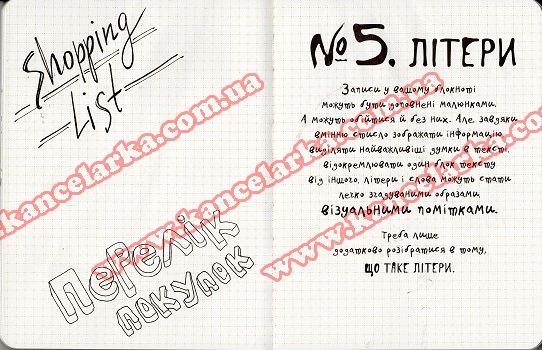 Shopping
List
Перелік
покупок
№5. ЛІТЕРИ
Записи у вашому блокноті
можуть бути доповнені малюнками.
А можуть обійтися й без них. Але завдяки
вмінню стисло зображати інформацію,
виділяти найважливіші думки в тексті,
відокремлювати один блок тексту
від іншого, літери і слова можуть стати
легко згадуваними образами,
візуальними помітками.
Треба лише
додатково розібратися в тому,
ЩО ТАКЕ ЛІТЕРИ.
www.kancelarka.com.ua
www.kancelarka.com.ua